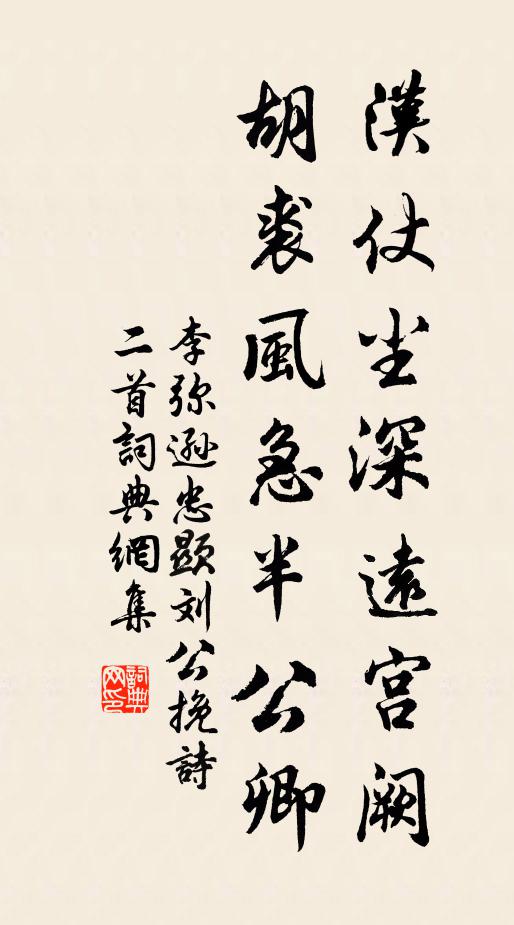 漢仗尘深遠宫阙
胡裘風急半公卿
李弥遜忠顯刘公挽詩
二首詞典網集
詞典網印